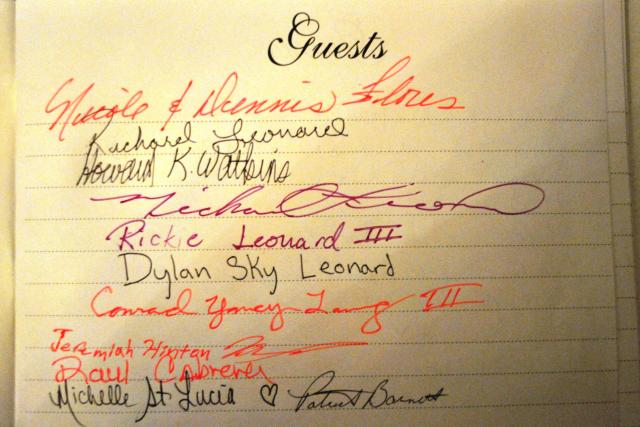 Guests
Nicole & Dennis Flores
Richard Leonard
Howard K. Watkins
Michael
Rickie Leonard III
Dylan Sky Leonard
Conrad Yancy Lang III
Jeremiah Hinton
Raul Cabrera
Michelle St Lucia ♡ Patrick Barnett